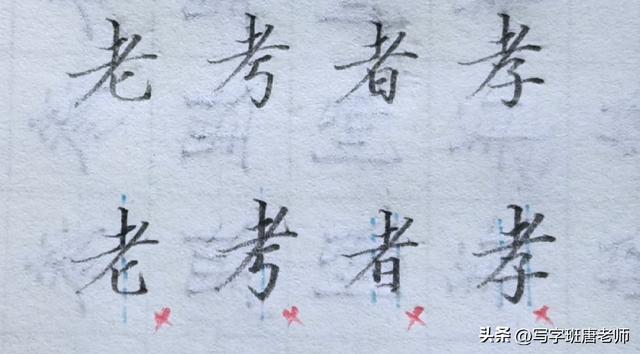 老考者孝
老考者孝
头条@写字班唐老师